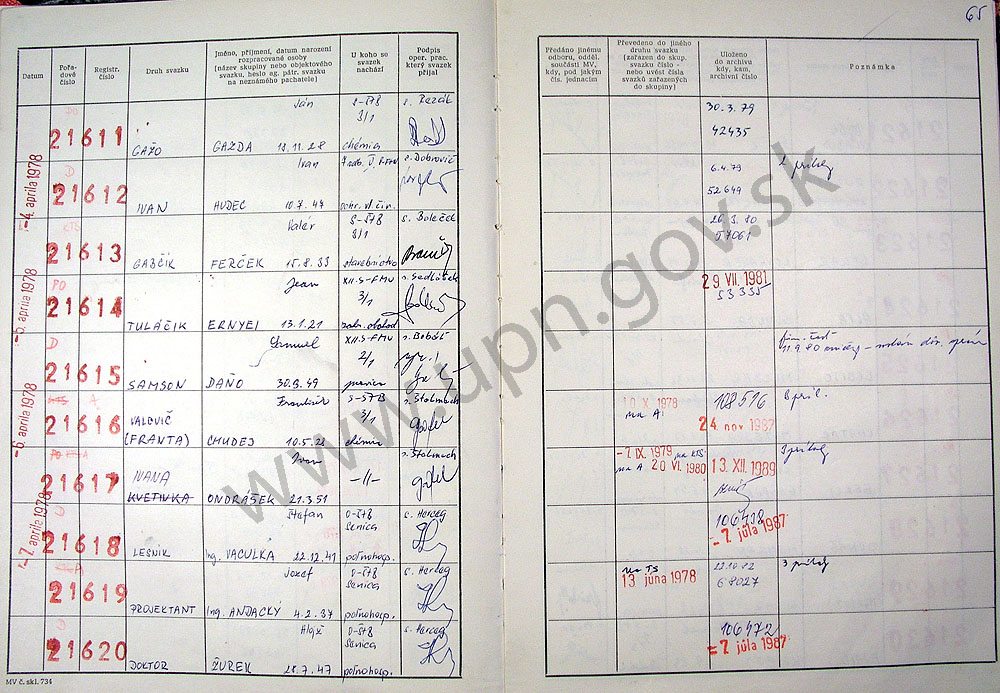 65
Datum
Pořadové číslo
Registr. číslo
Druh svazku
Jméno, příjmení, datum narození
rozpracované osoby
(název skupiny nebo objektového
svazku, heslo ag. pátr. svazku
na neznámého pachatele)
U koho se
svazek
nachází
Podpis
oper. prac.
který svazek
přijal
Předáno jinému
odboru, odděl.
součásti MV,
kdy, pod jakým
čís. jednacím
Převedeno do jiného
druhu svazku
(zařazen do skup.
svazku číslo -
nebo uvést čísla
svazků zařazených
do skupiny)
Uloženo
do archivu
kdy, kam,
archivní číslo
Poznámka
Ján
30.3.79
21611
3/1
42435
GAŽO GAZDA 13.11.28 chémia
-4. apríla 1978
D
Ivan
6.4.79
21612
52649
IVAN HUDEC 10.7.47
Valér
21613
3/1
57061
GABČÍK FERČEK 15.8.33
-5. apríla 1978
PO
Jean
XII.S-FMV
29 VII. 1981
21614
3/1
53355
TULÁČIK ERNYEI 13.1.21
D
Samuel
XII.S-FMV
21615
2/1
SAMSON DAŇO 30.9.49
-6. apríla 1978
A
František
10 X 1978
108516
21616
3/1
na A
24 nov 1987
VALOVIČ
(FRANTA) CHUDEJ 10.5.21 chémia
Ivan
-7. IX. 1979 na KTS
21617
IVANA
-11-
na A 20 VI. 1980
13 XII. 1989
KVETINKA ONDRÁŠEK 21.3.51
-7. apríla 1978
D
Štefan
O-ŠTB
s. Herceg
21618
Senica
-7 júla 1987
LESNÍK Ing. VACULKA 22.12.41 poľnohosp.
Jozef
O-ŠTB
s. Herceg
na TS
22.10.82
21619
Senica
13 júna 1978
68027
PROJEKTANT Ing. ANDACKÝ 4.2.37 poľnohosp.
D
Alojz
O-ŠTB
s. Herceg
106472
21620
Senica
-7 júla 1987
DOKTOR ŽUREK 28.7.47 poľnohosp.
MV č. skl. 734
www.upn.gov.sk